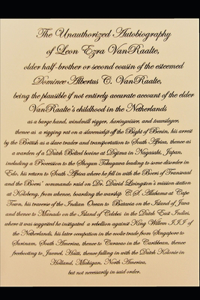 The Unauthorized Autobiography
of Leon Ezra VanRaalte,
older half-brother or second cousin of the esteemed
Dominee Albertus C. VanRaalte,
being the plausible if not entirely accurate account of the elder
VanRaalte's childhood in the Netherlands
as a barge hand, windmill rigger, haringmaan, and travelogue,
thence as a rigging rat on a slavership off the Bight of Benin, his arrest
by the British as a slave trader and transportation to South Africa, thence as
a warden of a Dutch brothel barge at Dejima in Nagasaki, Japan,
including a Procession to the Shogun Tokugawa leading to some disorder in
Edo, his return to South Africa where he fell in with the Boers of Transvaal
and the Boers' commando raid on Dr. David Livingston's mission station
at Kolobeng, from whence, boarding the warship C.S.S. Alabama at Cape
Town, his traverse of the Indian Ocean to Batavia on the Island of Java
and thence to Manado on the Island of Celebes in the Dutch East Indies,
where it was suggested he instigated a rebellion against King Willem III of
the Netherlands, his later conspiration in the mule trade from Singapore to
Suriname, South America, thence to Curacao in the Caribbean, thence
forthrightly to Jacmel, Haiti, thence falling in with the Dutch Kolonie in
Holland, Michigan, North America,
but not necessarily in said order.